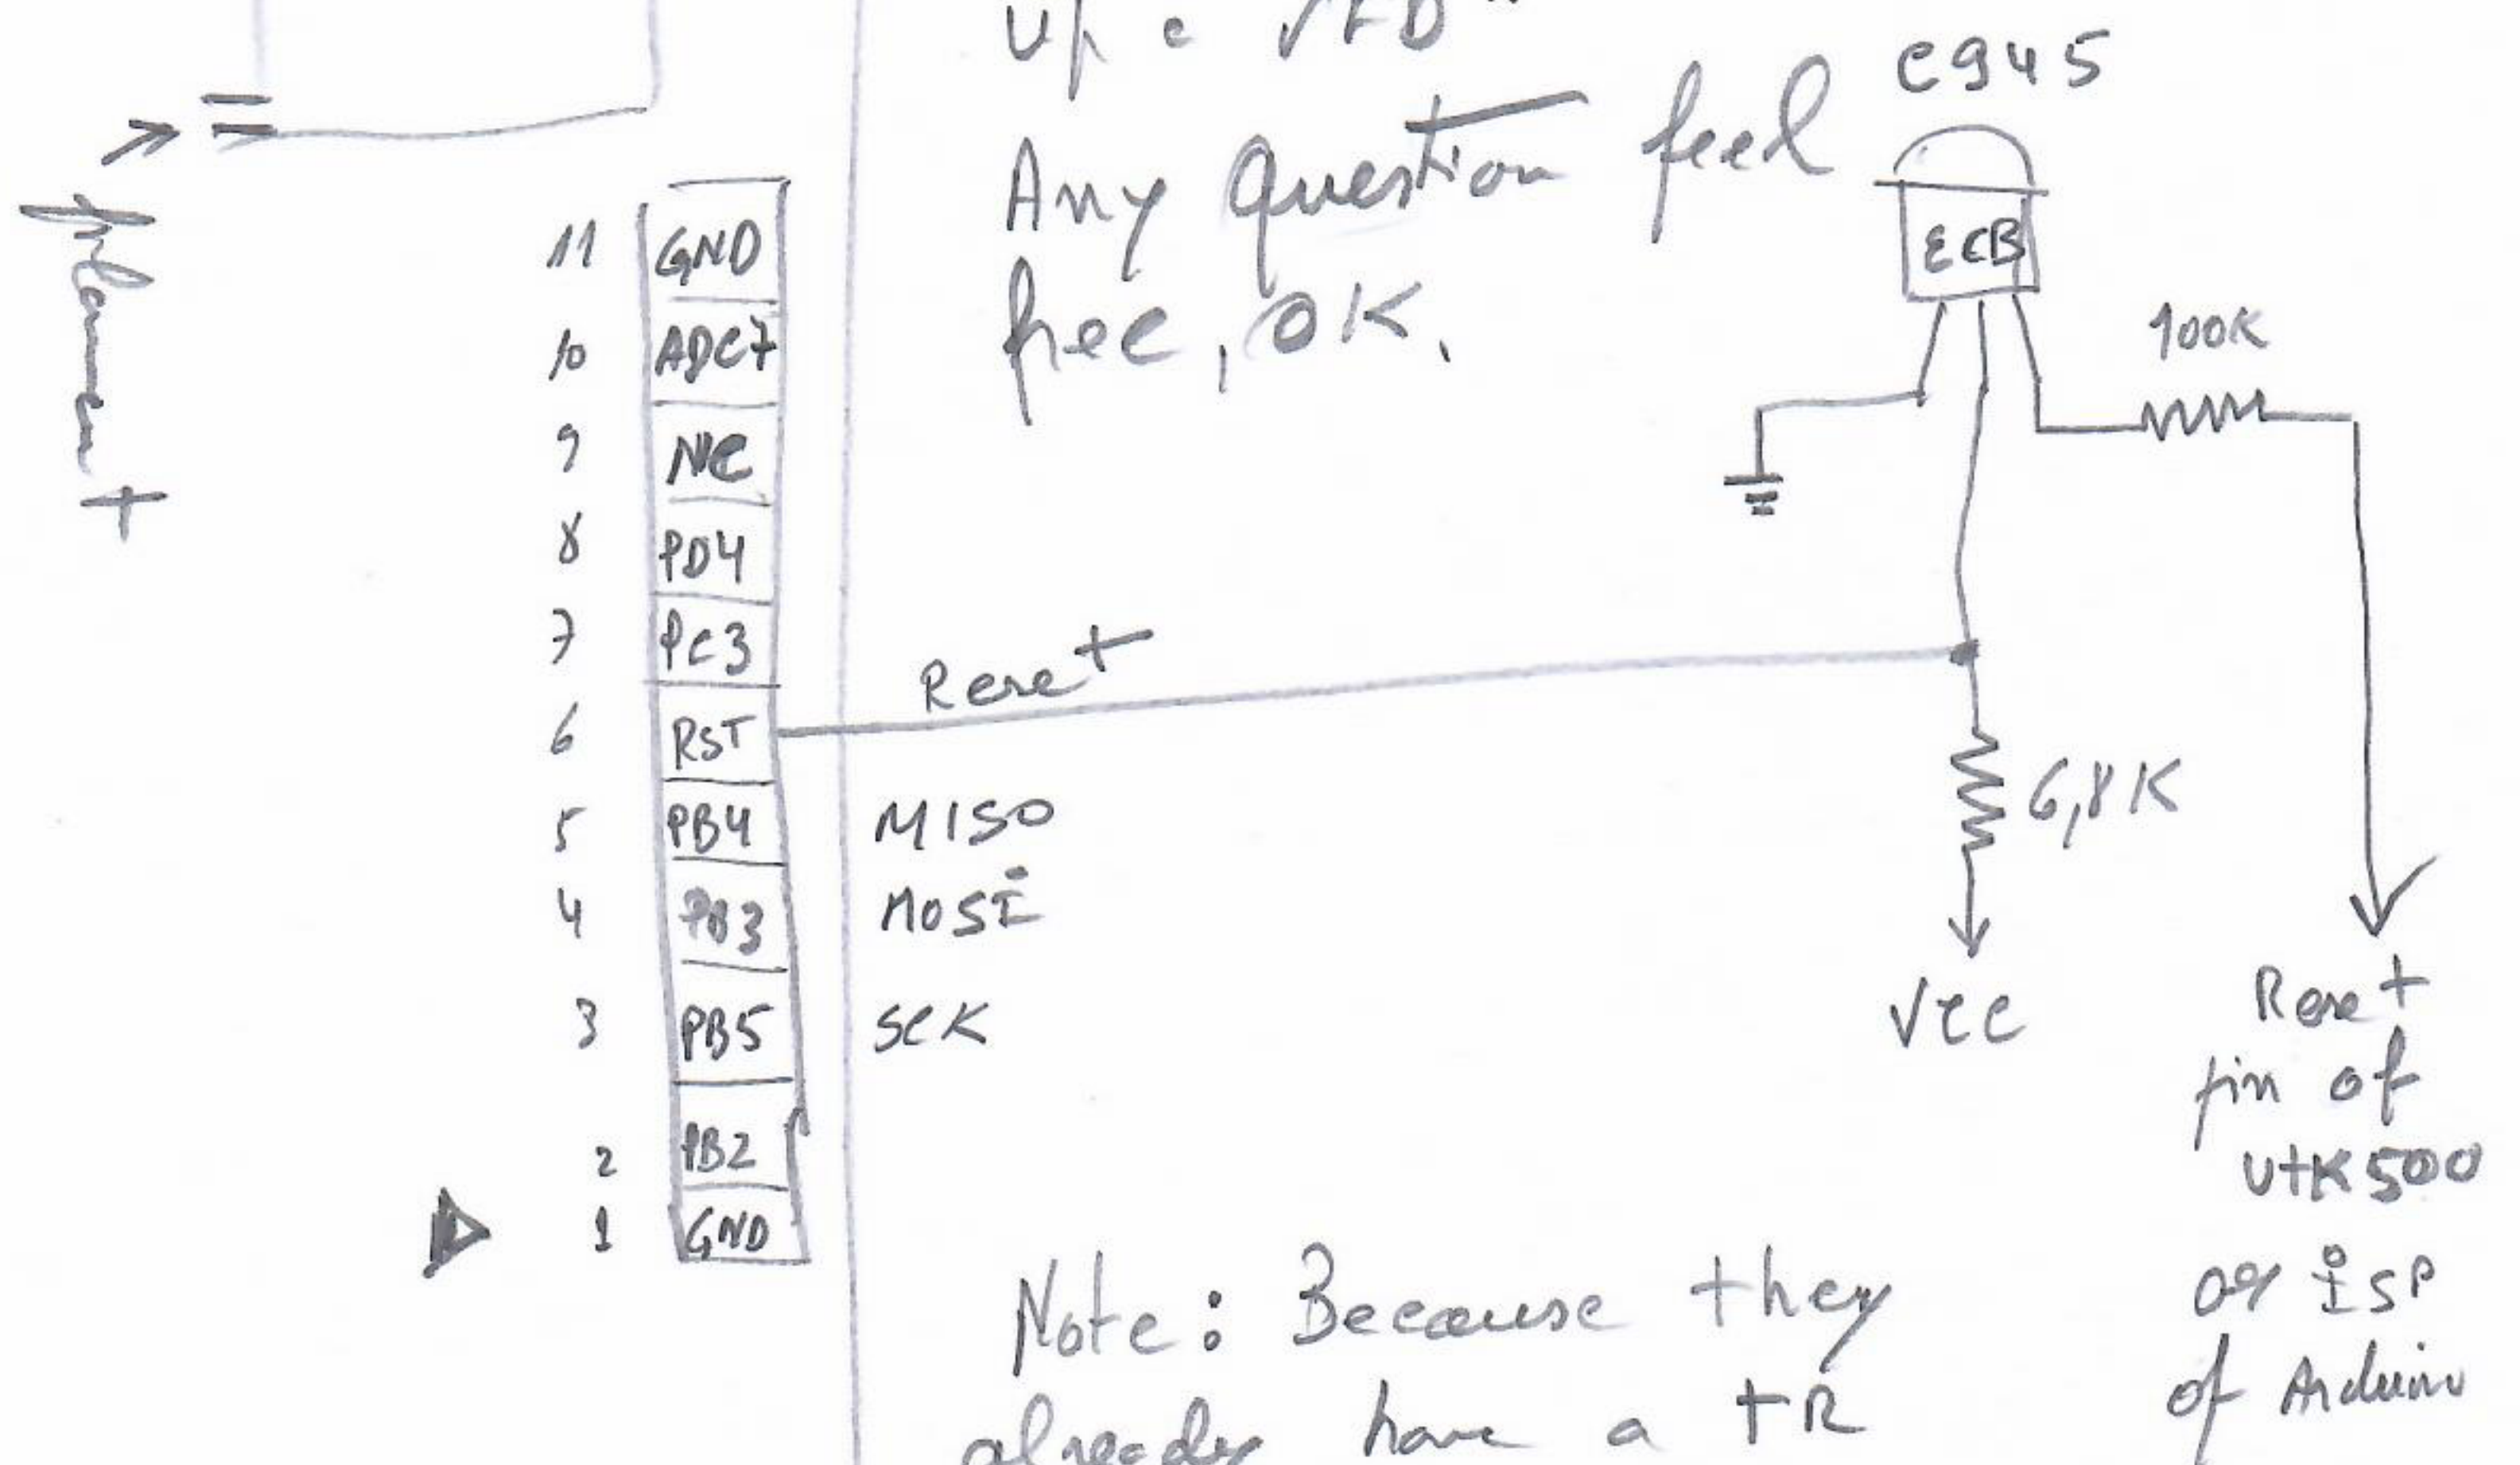 up a VFD"
Any Question feel
free, OK.
C945
ECB
100K
filament
11 GND
10 ADC7
9 NC
8 PD4
7 PC3
6 RST
Reset
5 PB4 MISO
4 PB3 MOSI
3 PB5 SCK
2 PB2
1 GND
6,8K
VCC
Reset
pin of
UtK500
or ISP
of Arduino
Note: Because they
already have a TR